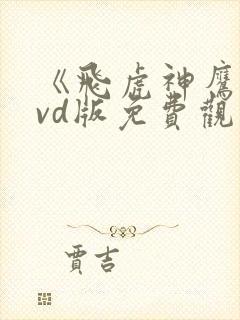 《飛虎神鷹
vd版免費觀
賈吉